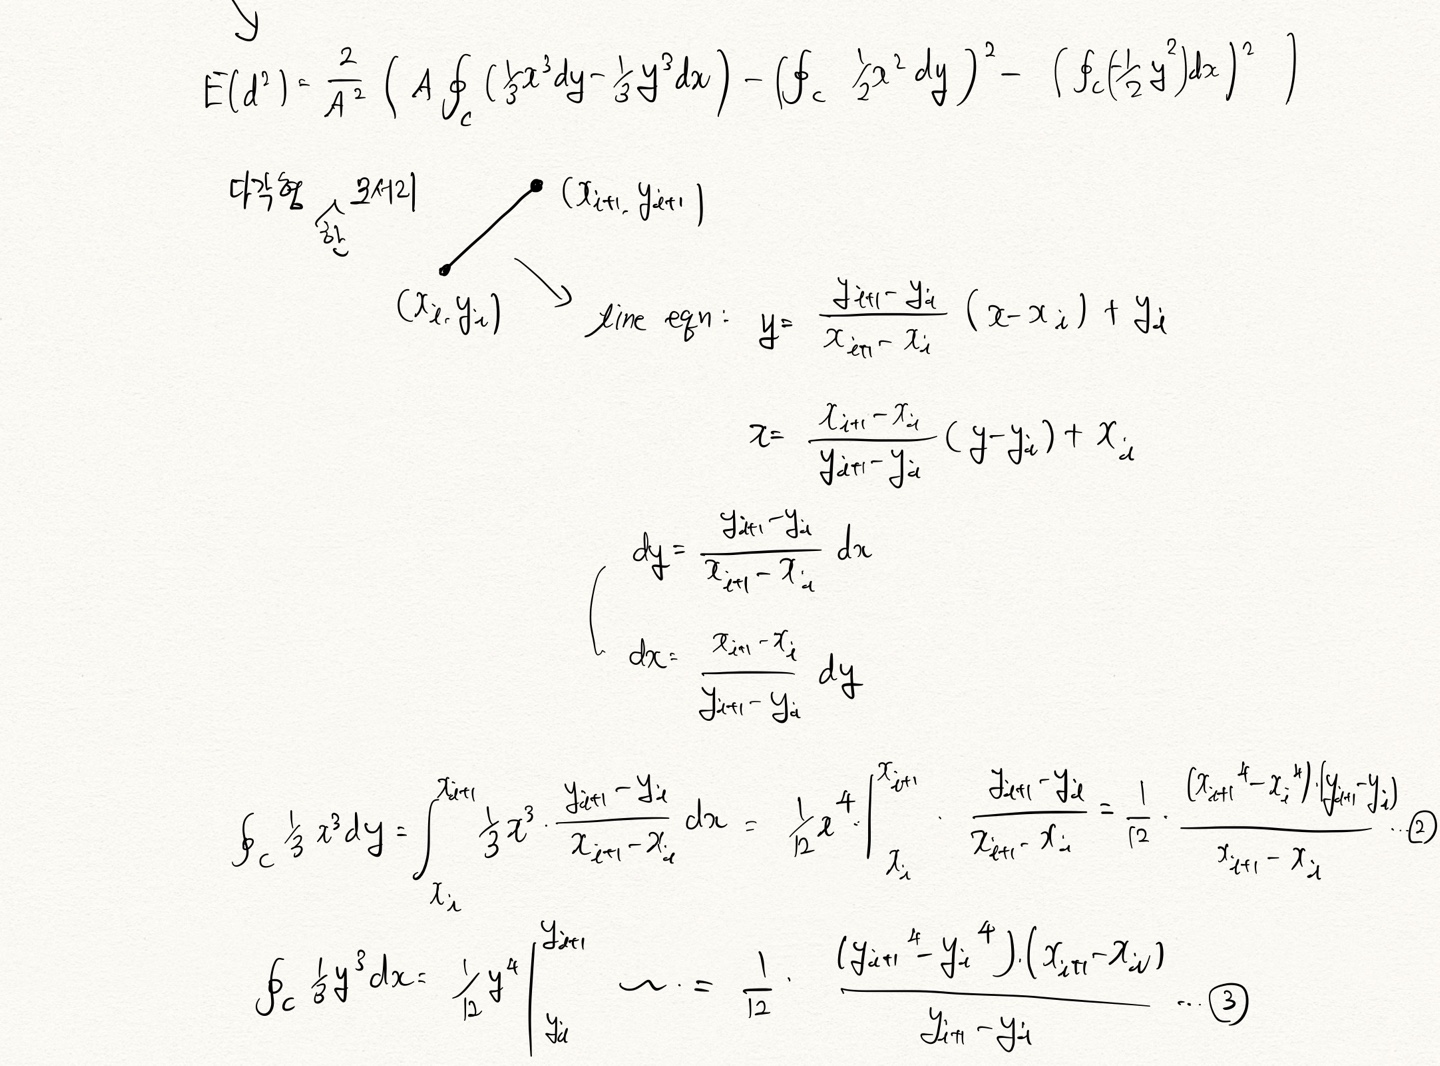 E(d²) = 2/A² ( A ∮_C (1/3 x³dy − 1/3 y³dx) − (∮_C 1/2 x² dy)² − (∮_C(−1/2 y²)dx)² )
다각형 한 모서리 (x_{i+1}, y_{i+1})
(x_i, y_i)
line eqn: y = (y_{i+1} − y_i)/(x_{i+1} − x_i) (x − x_i) + y_i
x = (x_{i+1} − x_i)/(y_{i+1} − y_i) (y − y_i) + x_i
dy = (y_{i+1} − y_i)/(x_{i+1} − x_i) dx
dx = (x_{i+1} − x_i)/(y_{i+1} − y_i) dy
∮_C 1/3 x³dy = ∫_{x_i}^{x_{i+1}} 1/3 x³ · (y_{i+1} − y_i)/(x_{i+1} − x_i) dx = 1/12 x⁴ |_{x_i}^{x_{i+1}} · (y_{i+1} − y_i)/(x_{i+1} − x_i) = 1/12 · (x_{i+1}⁴ − x_i⁴)·(y_{i+1} − y_i)/(x_{i+1} − x_i) ... ②
∮_C 1/3 y³dx = 1/12 y⁴ |_{y_i}^{y_{i+1}} ~ · = 1/12 · (y_{i+1}⁴ − y_i⁴)·(x_{i+1} − x_i)/(y_{i+1} − y_i) ... ③